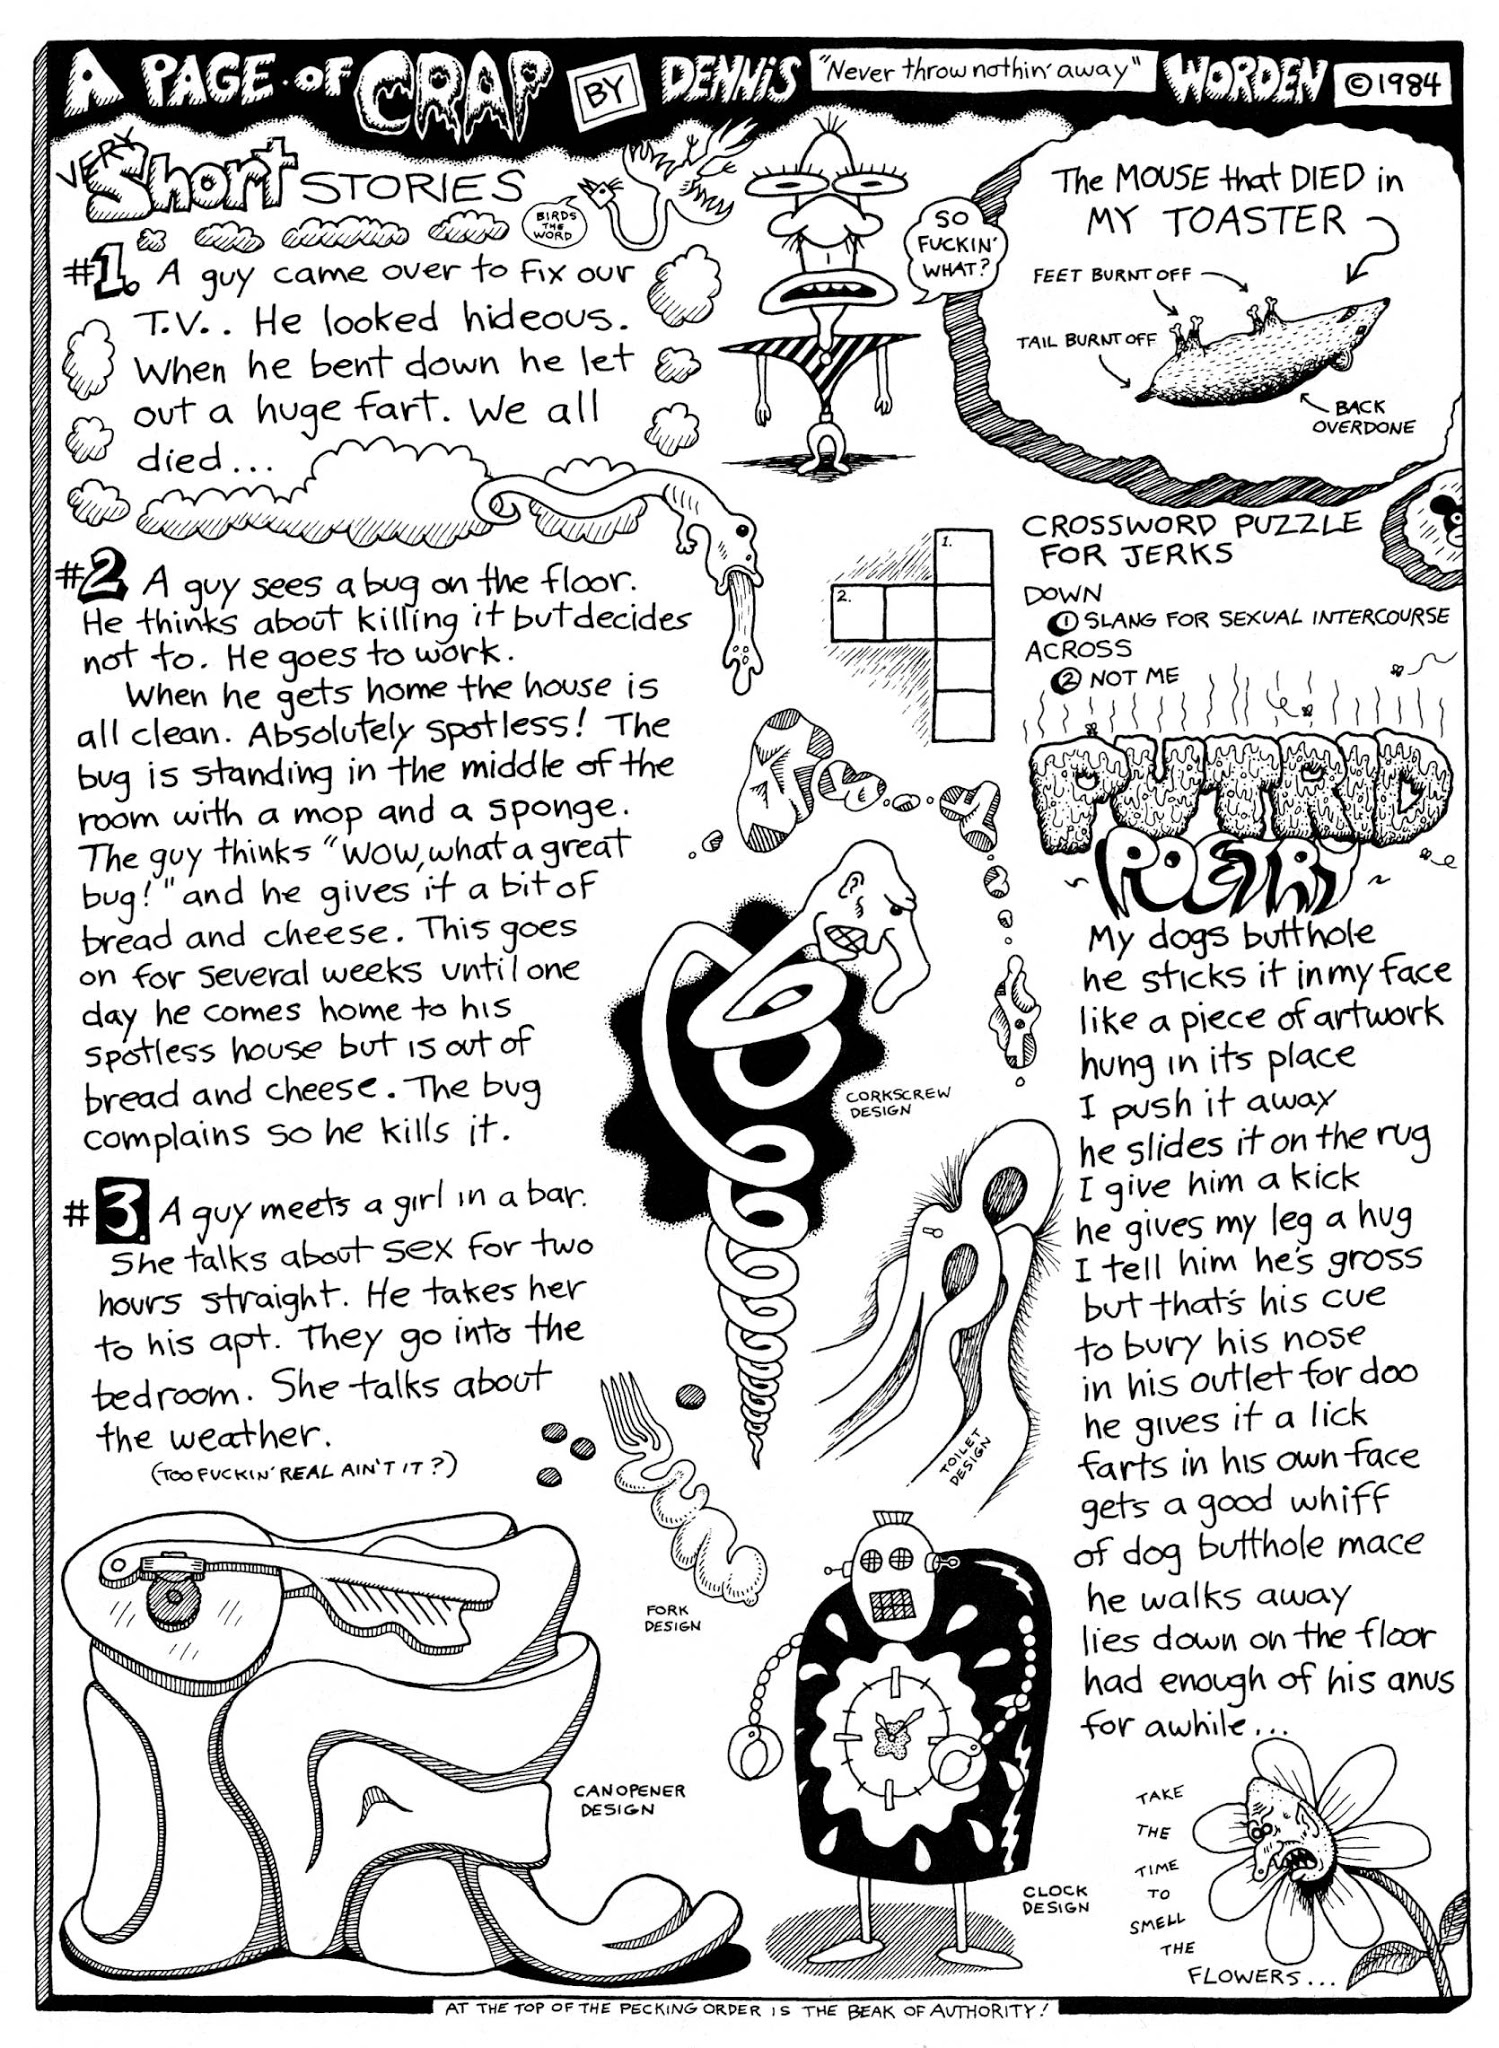 A PAGE OF CRAP BY DENNIS "Never throw nothin' away" WORDEN ©1984
VERY Short STORIES
BIRDS
THE
WORD
#1. A guy came over to fix our
T.V.. He looked hideous.
When he bent down he let
out a huge fart. We all
died...
SO
FUCKIN'
WHAT?
The MOUSE that DIED in
MY TOASTER
FEET BURNT OFF
TAIL BURNT OFF
BACK
OVERDONE
#2 A guy sees a bug on the floor.
He thinks about killing it but decides
not to. He goes to work.
When he gets home the house is
all clean. Absolutely spotless! The
bug is standing in the middle of the
room with a mop and a sponge.
The guy thinks "WOW, what a great
bug!" and he gives it a bit of
bread and cheese. This goes
on for several weeks until one
day he comes home to his
spotless house but is out of
bread and cheese. The bug
complains so he kills it.
#3. A guy meets a girl in a bar.
She talks about sex for two
hours straight. He takes her
to his apt. They go into the
bedroom. She talks about
the weather.
(TOO FUCKIN' REAL AIN'T IT?)
CROSSWORD PUZZLE
FOR JERKS
1.
2.
DOWN
① SLANG FOR SEXUAL INTERCOURSE
ACROSS
② NOT ME
PUTRID
~ POETRY ~
My dogs butthole
he sticks it in my face
like a piece of artwork
hung in its place
I push it away
he slides it on the rug
I give him a kick
he gives my leg a hug
I tell him he's gross
but that's his cue
to bury his nose
in his outlet for doo
he gives it a lick
farts in his own face
gets a good whiff
of dog butthole mace
he walks away
lies down on the floor
had enough of his anus
for awhile...
CORKSCREW
DESIGN
TOILET
DESIGN
FORK
DESIGN
CANOPENER
DESIGN
CLOCK
DESIGN
TAKE
THE
TIME
TO
SMELL
THE
FLOWERS...
AT THE TOP OF THE PECKING ORDER IS THE BEAK OF AUTHORITY!